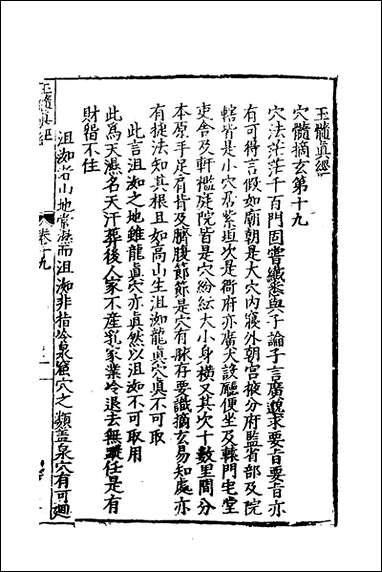 玉髓真經
穴髓摘玄第十九
穴法茫茫千百門固嘗纖悉與子論子言廣邈求要旨要旨亦
有可得言假如廟朝是大穴内寢外朝宮掖分府監省部及院
轄皆是小穴為紫垣次是衙府亦廣大設廳便坐及轅門宅堂
吏舍及軒檻庭院皆是穴紛紜大小身橫又其次十數里間分
本原手足有指及臍腹節節是穴有脉存要識摘玄易知處亦
有捷法知其根且如高山生沮洳龍眞穴眞不可取
此言沮洳之地雖龍眞穴亦眞然以沮洳不可取用
此為天濕名天汗葬後人家不産乳家業冷退去無蹤任是有
財留不住
沮洳者山地常濕而沮洳非指冷泉竄穴之類蓋泉穴有可廻
玉髓眞經
卷十九